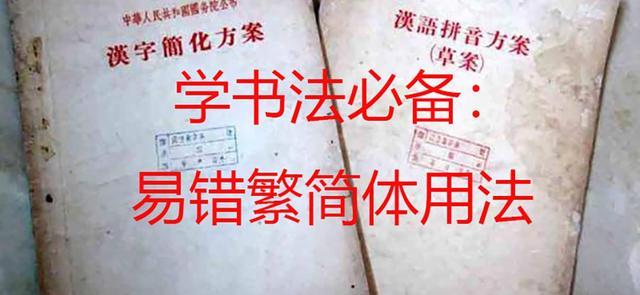 中華人民共和國國务院公布
漢字簡化方案
漢語拼音方案
(草案)
学书法必备：
易错繁简体用法